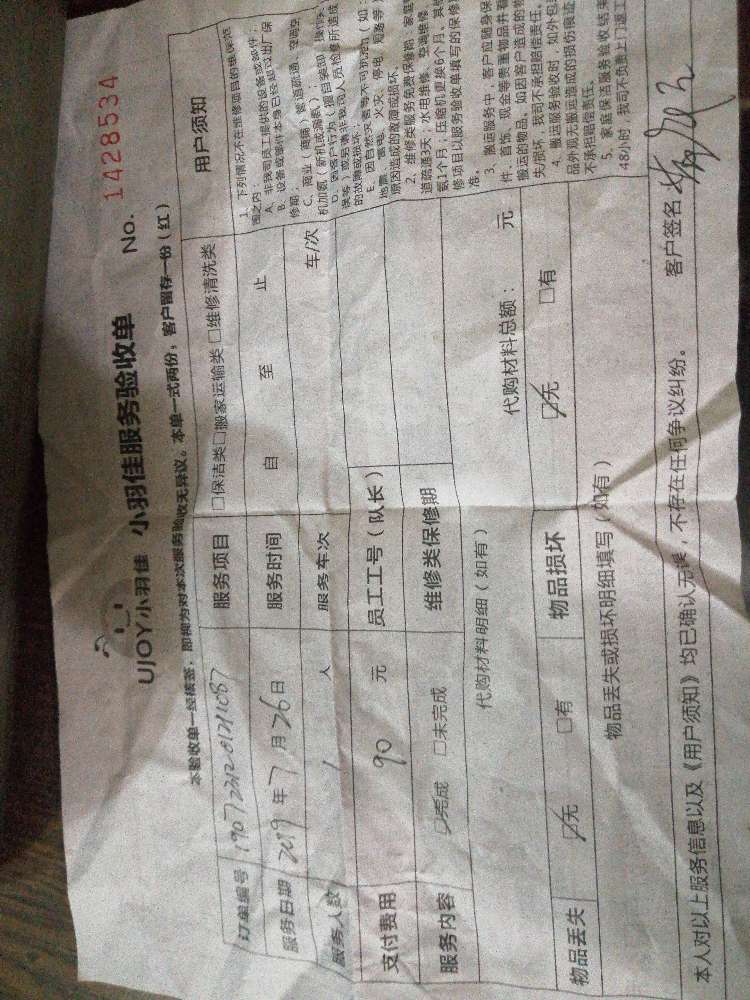 UJOY小羽佳 小羽佳服务验收单 No. 1428534
本验收单一经核签，即视为对本次服务验收无异议。本单一式两份，客户留存一份（红）
订单编号
服务项目 □保洁类 □搬家运输类 □维修清洗类
服务日期 2019 年 7 月 26 日
服务时间 自 至 止
服务人数 1 人
服务车次 车/次
支付费用 90 元
员工工号（队长）
服务内容 ☑完成 □未完成
维修类保修期
代购材料明细（如有）
代购材料总额： 元
物品丢失 ☑无 □有
物品损坏 ☑无 □有
物品丢失或损坏明细填写（如有）
用户须知
1、下列情况不在维修项目的维保范
围之内：
A、非我司员工提供的设备或部件；
B、设备或部件本身已经超过出厂保
修期；
C、商业（商铺）管道疏通、空调空
机加氨（新机或漏氨）；
的故障或损坏。
E、因自然灾害等不可抗力（如：
地震、雷电、火灾、停电、短路等）
原因造成的故障或损坏。
2、维修类服务免费保修期：家庭
道疏通3天；水电维修、空调维修
氨1个月；压缩机更换6个月。其他
修项目以服务验收单填写的保修
准。
3、搬运服务中，客户应随身保
件、首饰、现金等贵重物品并看
搬运的物品。如因客户造成的物
失/损坏，我司不承担赔偿责任。
4、搬运服务验收时，如外包
品外观无搬运造成的损伤痕迹
不承担赔偿责任。
5、家庭保洁服务验收结束
48小时，我司不负责上门返工
本人对以上服务信息以及《用户须知》均已确认无误，不存在任何争议纠纷。 客户签名